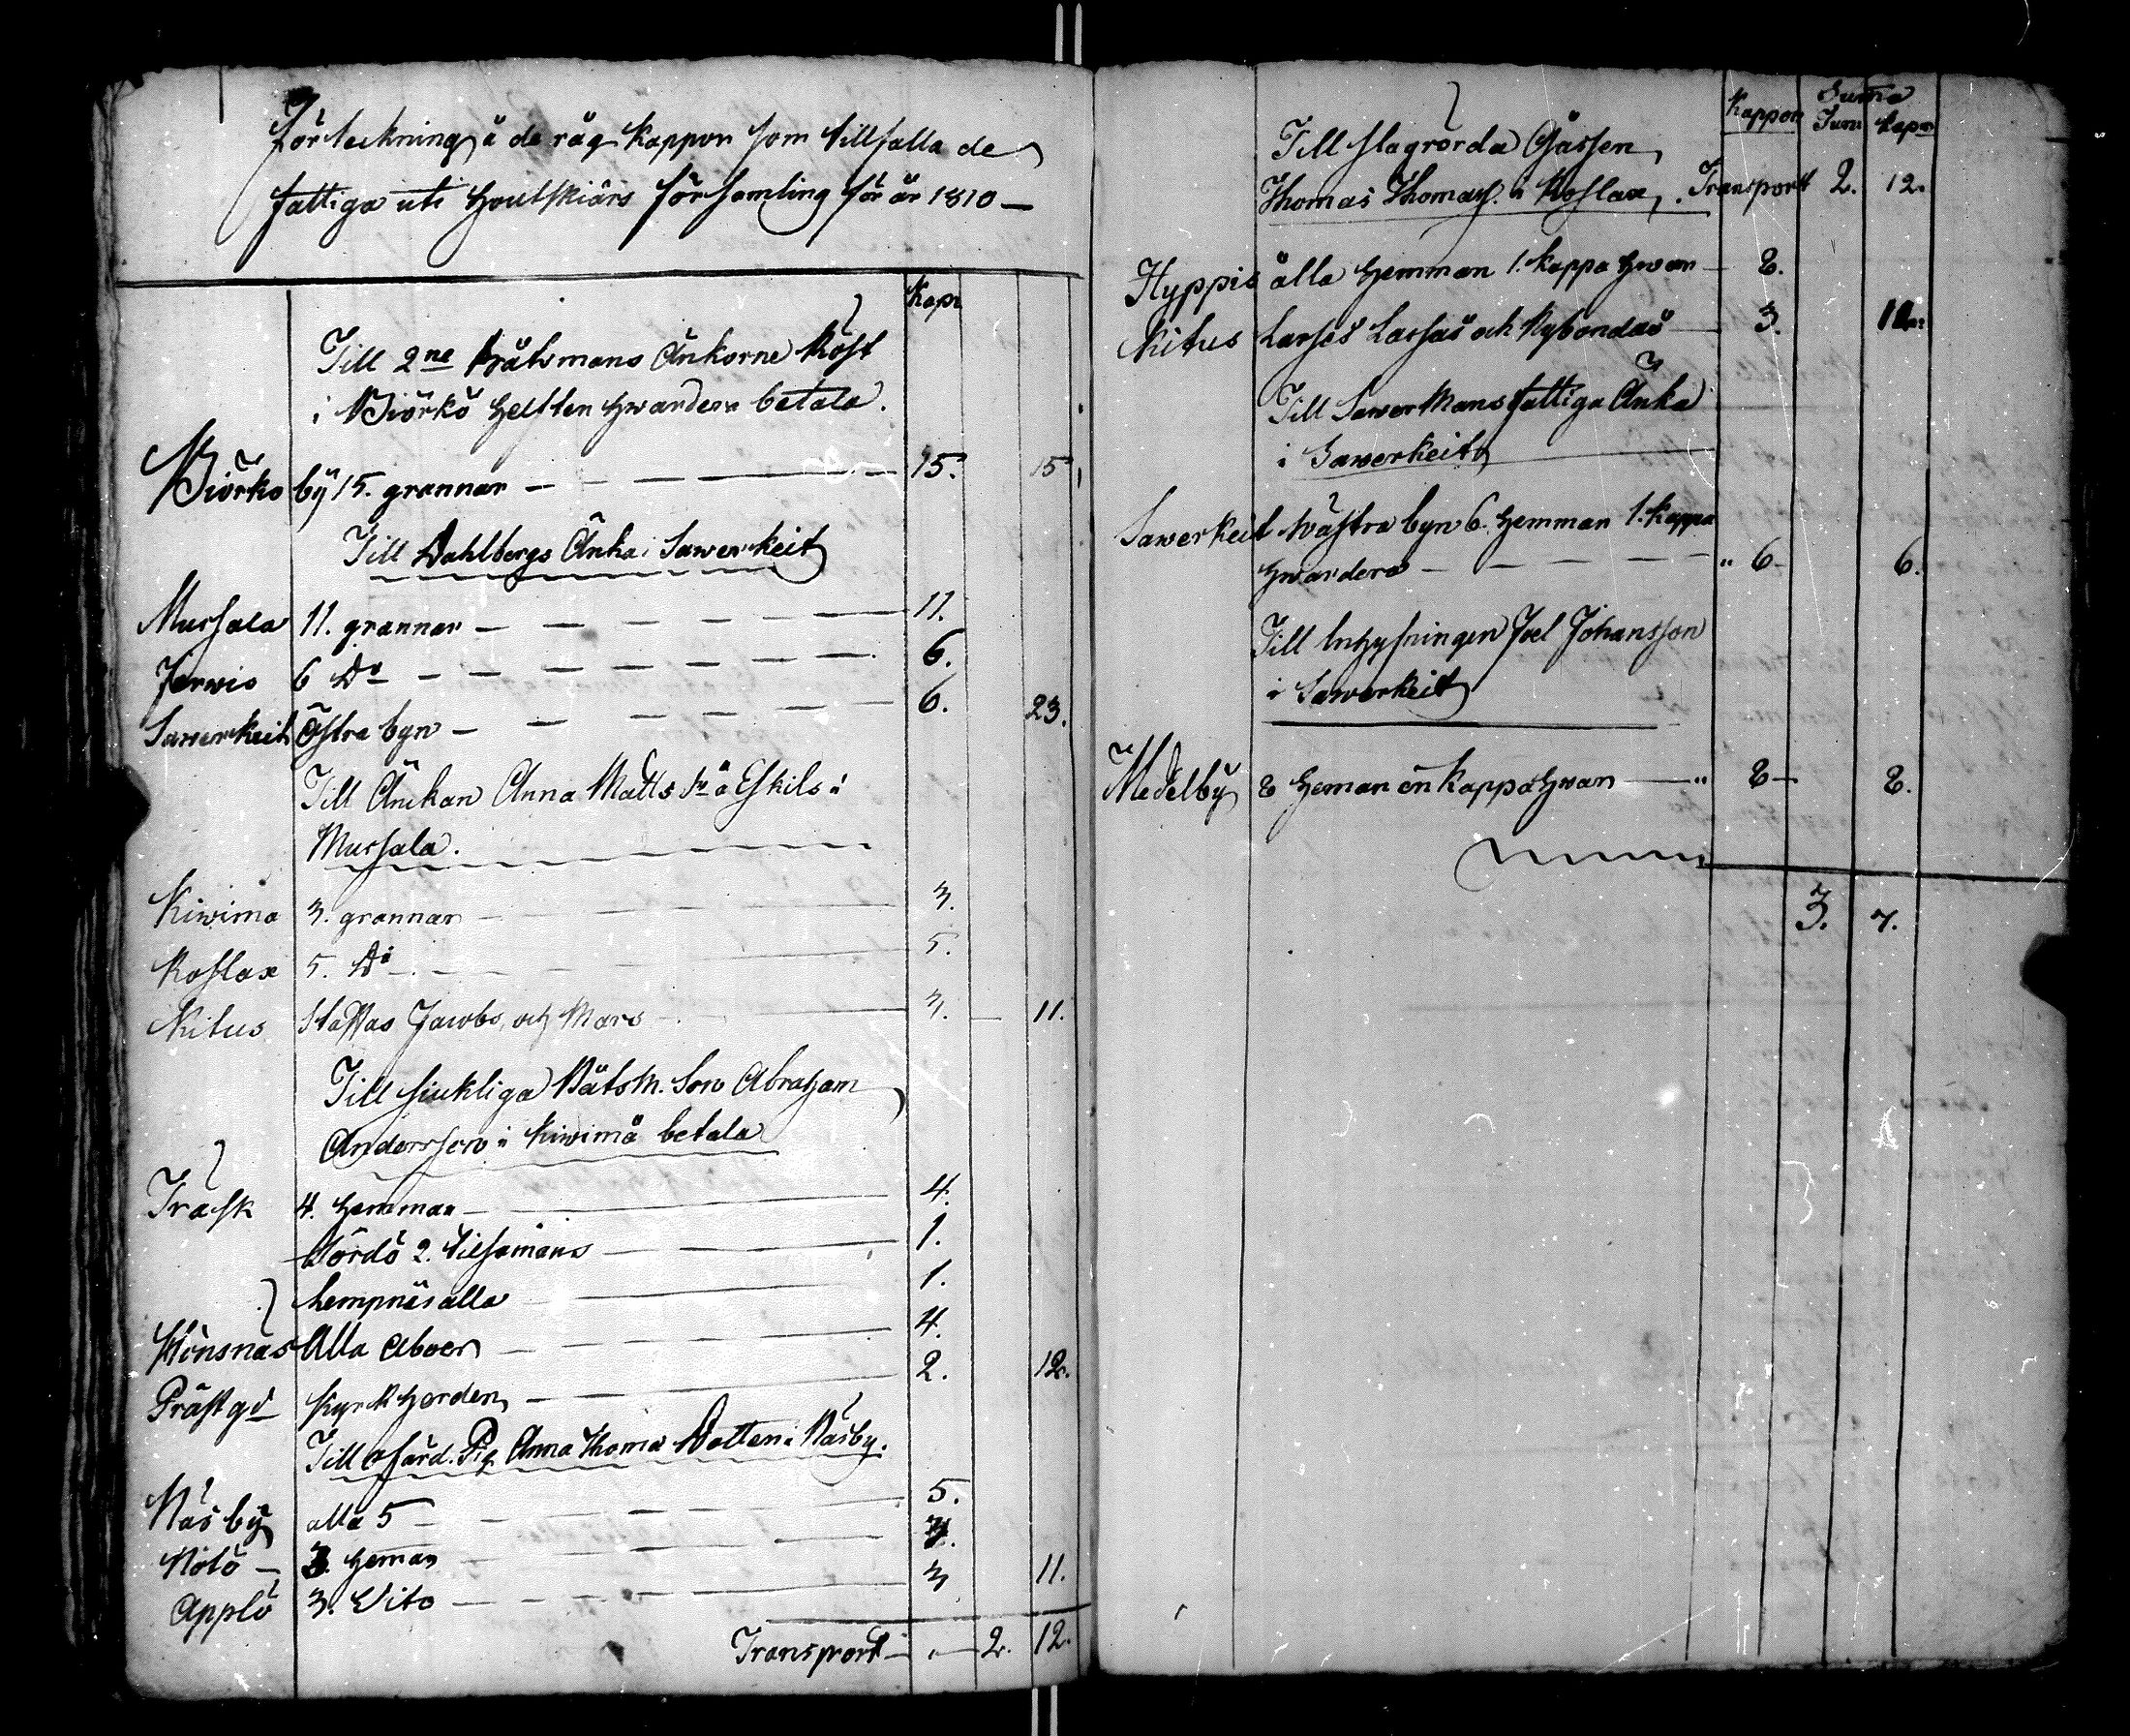 Förteckning å de råg kappor som tillfalla de
fattiga uti Houtskiärs församling för år 1810 —
Kapr
Till 2ne Båtsmans Änkorne Röst
i Biörkö Helften hwardera betala.
Biörko by 15. grannar — 15. 15
Till Dahlbergs Änka i Sawerkeit
Mussala 11. grannar — 11.
Jerwis 6 Do — 6.
Sawerkeit Östra byn — 6. 23.
Till Änckan Anna Matts Dr å Eskils i
Mussala.
Kiwimo 3. grannar — 3.
Roslax 5. Do — 5.
Kitus Staffas Jacobs och Mårs — 3. 11.
Till siukliga Båtsm. Son Abraham
Andersson i Kiwimå betala
Träsk 4. Hemman — 4.
Nördö 2. — 1.
Lempnäs alla — 1.
Hönsnäs Alla Aboer — 4.
Prästgd Kyrkherden — 2. 12.
Till ofärd. Pig. Anna Thoma Dotter i Näsby.
Näsby alla 5 — 5.
Nölö — 3. Heman — 3.
Applö 3. Dito — 3 11.
Transport — 2. 12.
Kappor Suma
Tunn Kapr
Till slagrörda Gåssen
Thomas Thomass. i Roslax. Transport 2. 12.
Hyppis alla Hemman 1. kappa hwar — 8.
Kitus Larses Lassas och Nybondas — 3. 11.
Till Sawer Mans fattiga Änka
i Sawerkeit
Sawerkeit Wästra byn 6. Hemman 1. kappa
hwardera — " 6 — 6.
Till Inhysningen Joel Johansson
i Sawerkeit
Medelby 8 Heman en kappa hwar — " 8 — 8.
3. 7.